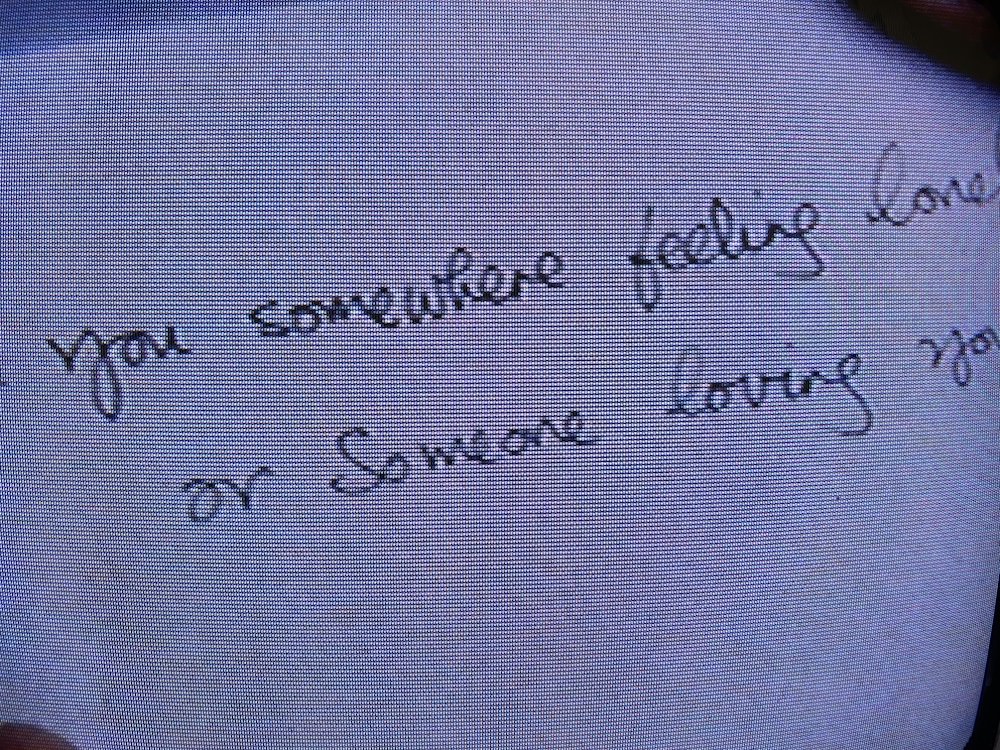 you somewhere feeling lone
or Someone loving you